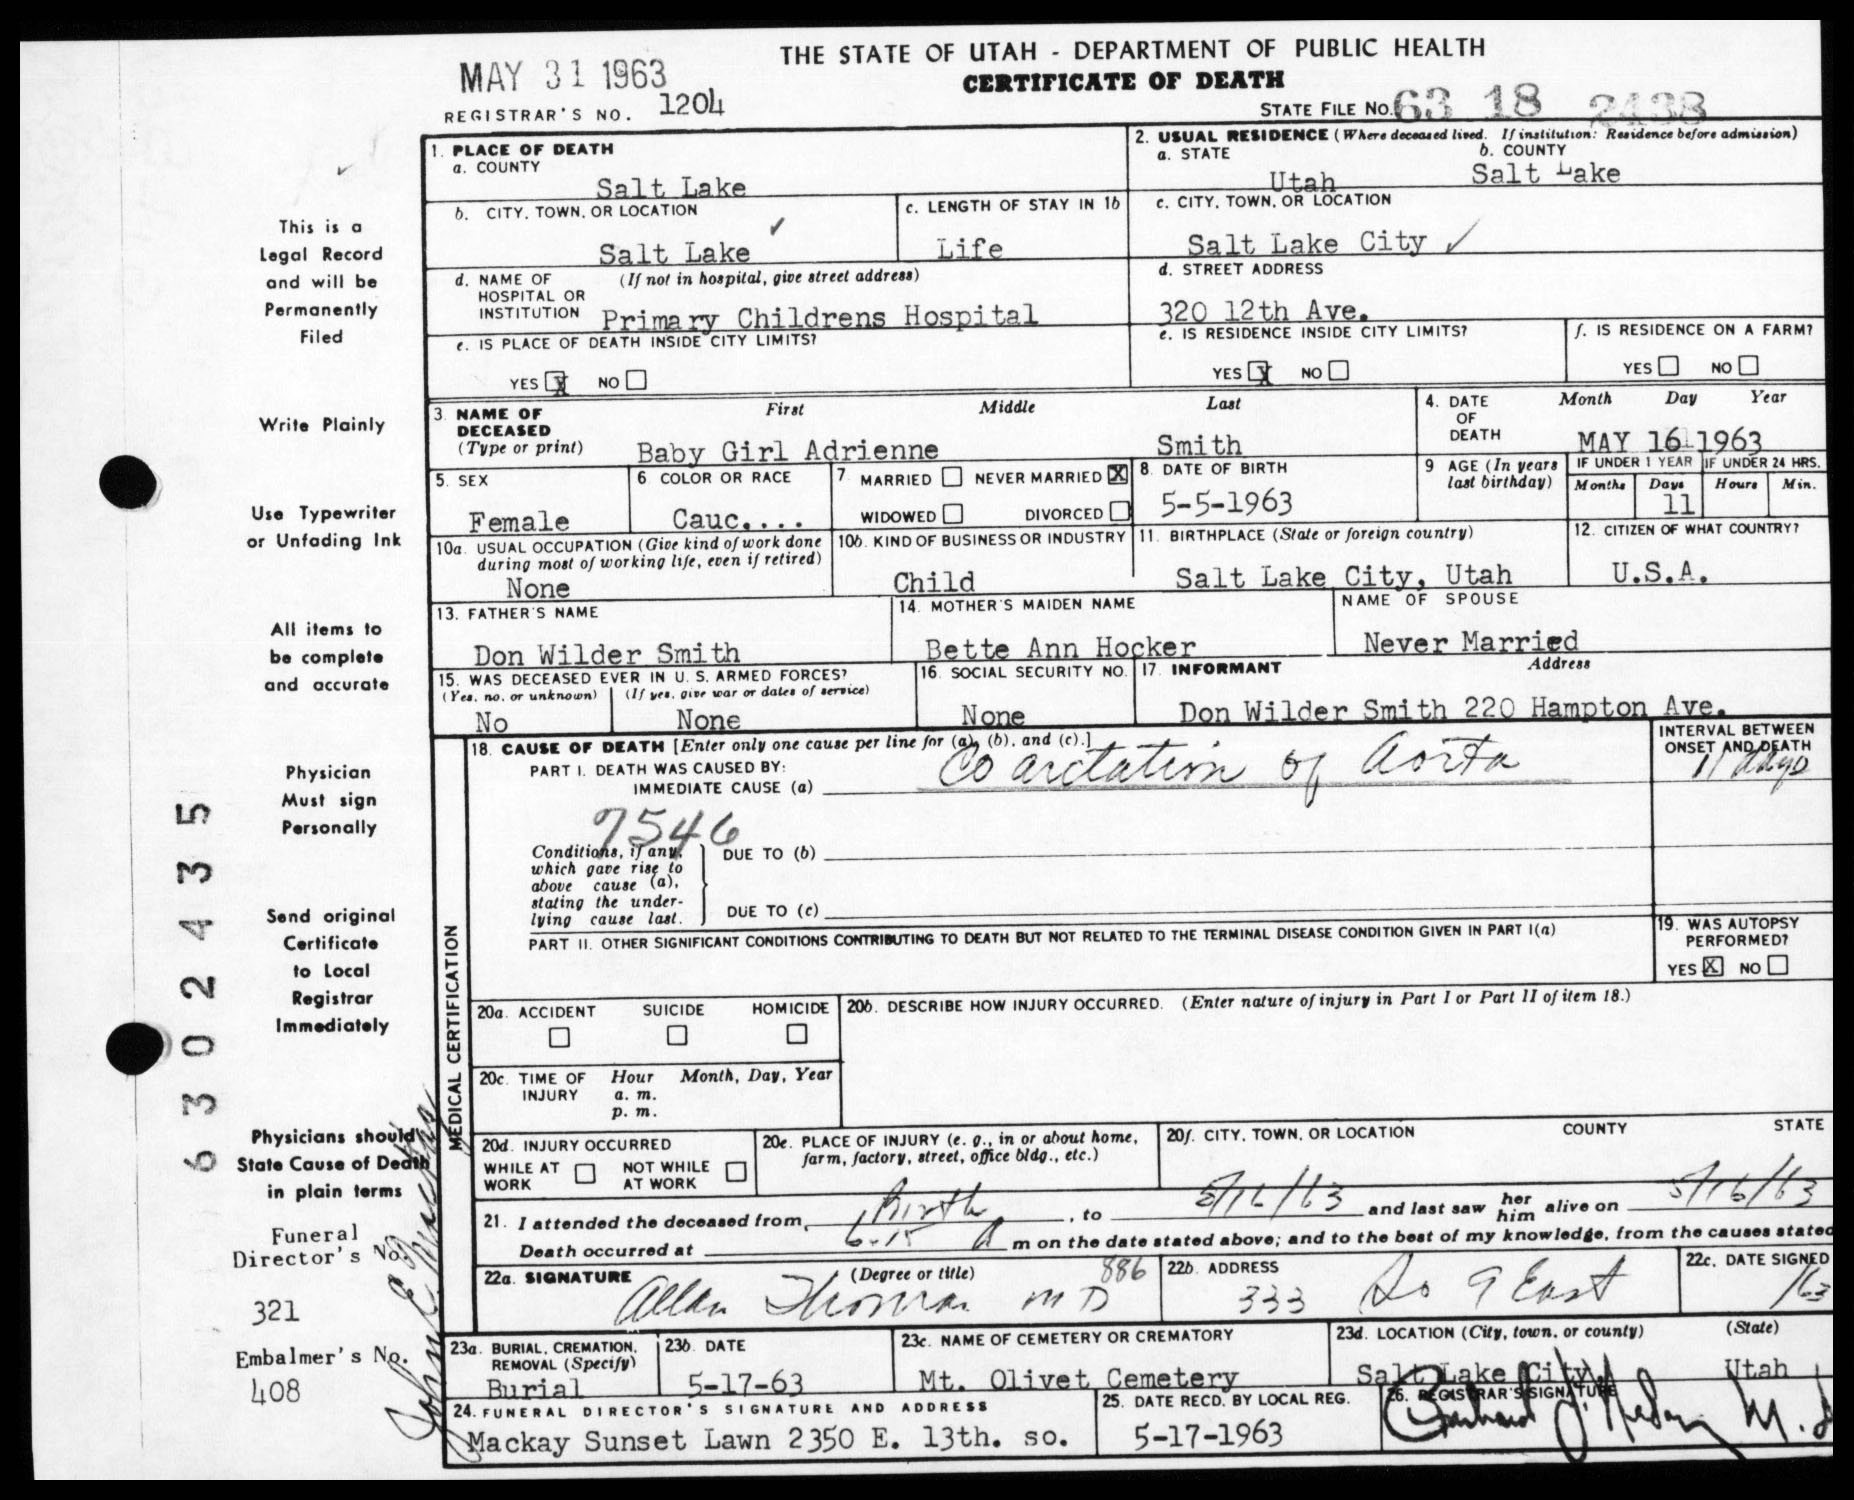 THE STATE OF UTAH - DEPARTMENT OF PUBLIC HEALTH
MAY 31 1963
CERTIFICATE OF DEATH
REGISTRAR'S NO. 1204
STATE FILE NO. 63 18 2438
1. PLACE OF DEATH
a. COUNTY
Salt Lake
2. USUAL RESIDENCE (Where deceased lived. If institution: Residence before admission)
a. STATE
Utah
b. COUNTY
Salt Lake
b. CITY, TOWN, OR LOCATION
Salt Lake
c. LENGTH OF STAY IN 1b
Life
c. CITY, TOWN, OR LOCATION
Salt Lake City
d. NAME OF HOSPITAL OR INSTITUTION (If not in hospital, give street address)
Primary Childrens Hospital
d. STREET ADDRESS
320 12th Ave.
e. IS PLACE OF DEATH INSIDE CITY LIMITS?
YES X NO
e. IS RESIDENCE INSIDE CITY LIMITS?
YES X NO
f. IS RESIDENCE ON A FARM?
YES NO
3. NAME OF DECEASED (Type or print)
First Middle Last
Baby Girl Adrienne Smith
4. DATE OF DEATH
Month Day Year
MAY 16 1963
5. SEX
Female
6 COLOR OR RACE
Cauc....
7. MARRIED NEVER MARRIED X
WIDOWED DIVORCED
8. DATE OF BIRTH
5-5-1963
9 AGE (In years last birthday)
IF UNDER 1 YEAR IF UNDER 24 HRS.
Months Days Hours Min.
11
10a. USUAL OCCUPATION (Give kind of work done during most of working life, even if retired)
None
10b. KIND OF BUSINESS OR INDUSTRY
Child
11. BIRTHPLACE (State or foreign country)
Salt Lake City, Utah
12. CITIZEN OF WHAT COUNTRY?
U.S.A.
13. FATHER'S NAME
Don Wilder Smith
14. MOTHER'S MAIDEN NAME
Bette Ann Hocker
NAME OF SPOUSE
Never Married
15. WAS DECEASED EVER IN U. S. ARMED FORCES?
(Yes, no, or unknown) (If yes, give war or dates of service)
No None
16. SOCIAL SECURITY NO.
None
17. INFORMANT Address
Don Wilder Smith 220 Hampton Ave.
MEDICAL CERTIFICATION
18. CAUSE OF DEATH [Enter only one cause per line for (a), (b), and (c).]
PART I. DEATH WAS CAUSED BY:
IMMEDIATE CAUSE (a) Coarctation of Aorta
INTERVAL BETWEEN ONSET AND DEATH
11 days
7546
Conditions, if any, which gave rise to above cause (a), stating the underlying cause last.
DUE TO (b)
DUE TO (c)
PART II. OTHER SIGNIFICANT CONDITIONS CONTRIBUTING TO DEATH BUT NOT RELATED TO THE TERMINAL DISEASE CONDITION GIVEN IN PART I(a)
19. WAS AUTOPSY PERFORMED?
YES X NO
20a. ACCIDENT SUICIDE HOMICIDE
20b. DESCRIBE HOW INJURY OCCURRED. (Enter nature of injury in Part I or Part II of item 18.)
20c. TIME OF INJURY
Hour Month, Day, Year
a. m.
p. m.
20d. INJURY OCCURRED
WHILE AT WORK NOT WHILE AT WORK
20e. PLACE OF INJURY (e. g., in or about home, farm, factory, street, office bldg., etc.)
20f. CITY, TOWN, OR LOCATION COUNTY STATE
21. I attended the deceased from, Birth, to 5/16/63 and last saw her him alive on 5/16/63
Death occurred at 6:15 A m on the date stated above; and to the best of my knowledge, from the causes stated
22a. SIGNATURE (Degree or title) 886
Allan Thomas MD
22b. ADDRESS
333 So 9 East
22c. DATE SIGNED
/63
23a. BURIAL, CREMATION, REMOVAL (Specify)
Burial
23b. DATE
5-17-63
23c. NAME OF CEMETERY OR CREMATORY
Mt. Olivet Cemetery
23d. LOCATION (City, town, or county) (State)
Salt Lake City, Utah
24. FUNERAL DIRECTOR'S SIGNATURE AND ADDRESS
Mackay Sunset Lawn 2350 E. 13th. so.
25. DATE RECD. BY LOCAL REG.
5-17-1963
26. REGISTRAR'S SIGNATURE
M.D
This is a
Legal Record
and will be
Permanently
Filed
Write Plainly
Use Typewriter
or Unfading Ink
All items to
be complete
and accurate
Physician
Must sign
Personally
Send original
Certificate
to Local
Registrar
Immediately
Physicians should
State Cause of Death
in plain terms
Funeral
Director's No.
321
Embalmer's No.
408
John E.
6302435